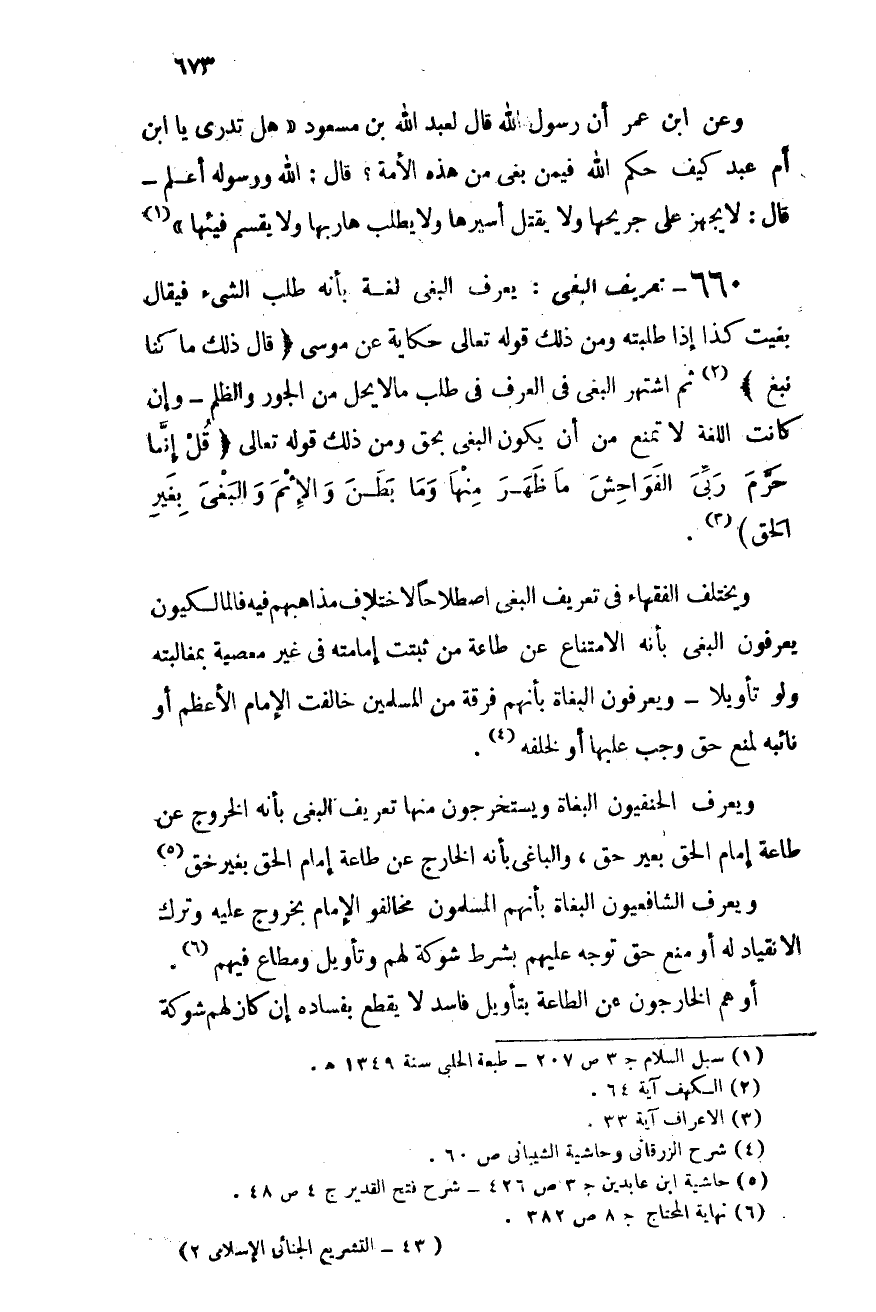 ٦٧٣
وعن ابن عمر أن رسول الله قال لعبد الله بن مسعود « هل تدرى يا ابن
أم عبد كيف حكم الله فيمن بغى من هذه الأمة ؟ قال : الله ورسوله أعـلم –
قال : لا يجهز على جريحها ولا يقتل أسيرها ولا يطلب هاربها ولا يقسم فيئها » (١)
٦٦٠ – تعريف البغى : يعرف البغى لغـة بأنه طلب الشىء فيقال
بغيت كذا إذا طلبته ومن ذلك قوله تعالى حكاية عن موسى ﴿ قال ذلك ما كنا
نبغ ﴾ (٢) ثم اشتهر البغى فى العرف فى طلب مالايحل من الجور والظلم – وإن
كانت اللغة لا تمنع من أن يكون البغى بحق ومن ذلك قوله تعالى ﴿ قُلْ إِنَّمَا
حَرَّمَ رَبِّىَ الفَوَاحِشَ مَا ظَهَـرَ مِنْهَا وَمَا بَطَـنَ وَالإِثْمَ وَالبَغْىَ بِغَيرِ
الحق ) (٣) .
ويختلف الفقهاء فى تعريف البغى اصطلاحاً لاختلاف مذاهبهم فيه فالمالـكيون
يعرفون البغى بأنه الامتناع عن طاعة من ثبتت إمامته فى غير معصية بمغالبته
ولو تأويلا – ويعرفون البغاة بأنهم فرقة من المسلمين خالفت الإمام الأعظم أو
نائبه لمنع حق وجب عليها أو لخلفه (٤) .
ويعرف الحنفيون البغاة ويستخرجون منها تعريف البغى بأنه الخروج عن
طاعة إمام الحق بغير حق ، والباغى بأنه الخارج عن طاعة إمام الحق بغير حق (٥)
ويعرف الشافعيون البغاة بأنهم المسلمون مخالفو الإمام بخروج عليه وترك
الانقياد له أو منع حق توجه عليهم بشرط شوكة لهم وتأويل ومطاع فيهم (٦) .
أو هم الخارجون عن الطاعة بتأويل فاسد لا يقطع بفساده إن كان لهم شوكة
(١) سبل السلام جـ ٣ ص ٢٠٧ – طبعة الحلبى سنة ١٣٤٩ هـ .
(٢) الـكهف آية ٦٤ .
(٣) الاعراف آية ٣٣ .
(٤) شرح الزرقانى وحاشية الشيبانى ص ٦٠ .
(٥) حاشية ابن عابدين جـ ٣ ص ٤٢٦ – شرح فتح القدير ج ٤ ص ٤٨ .
(٦) نهاية المحتاج جـ ٨ ص ٣٨٢ .
( ٤٣ – التشريع الجنائى الإسلامى ٢ )